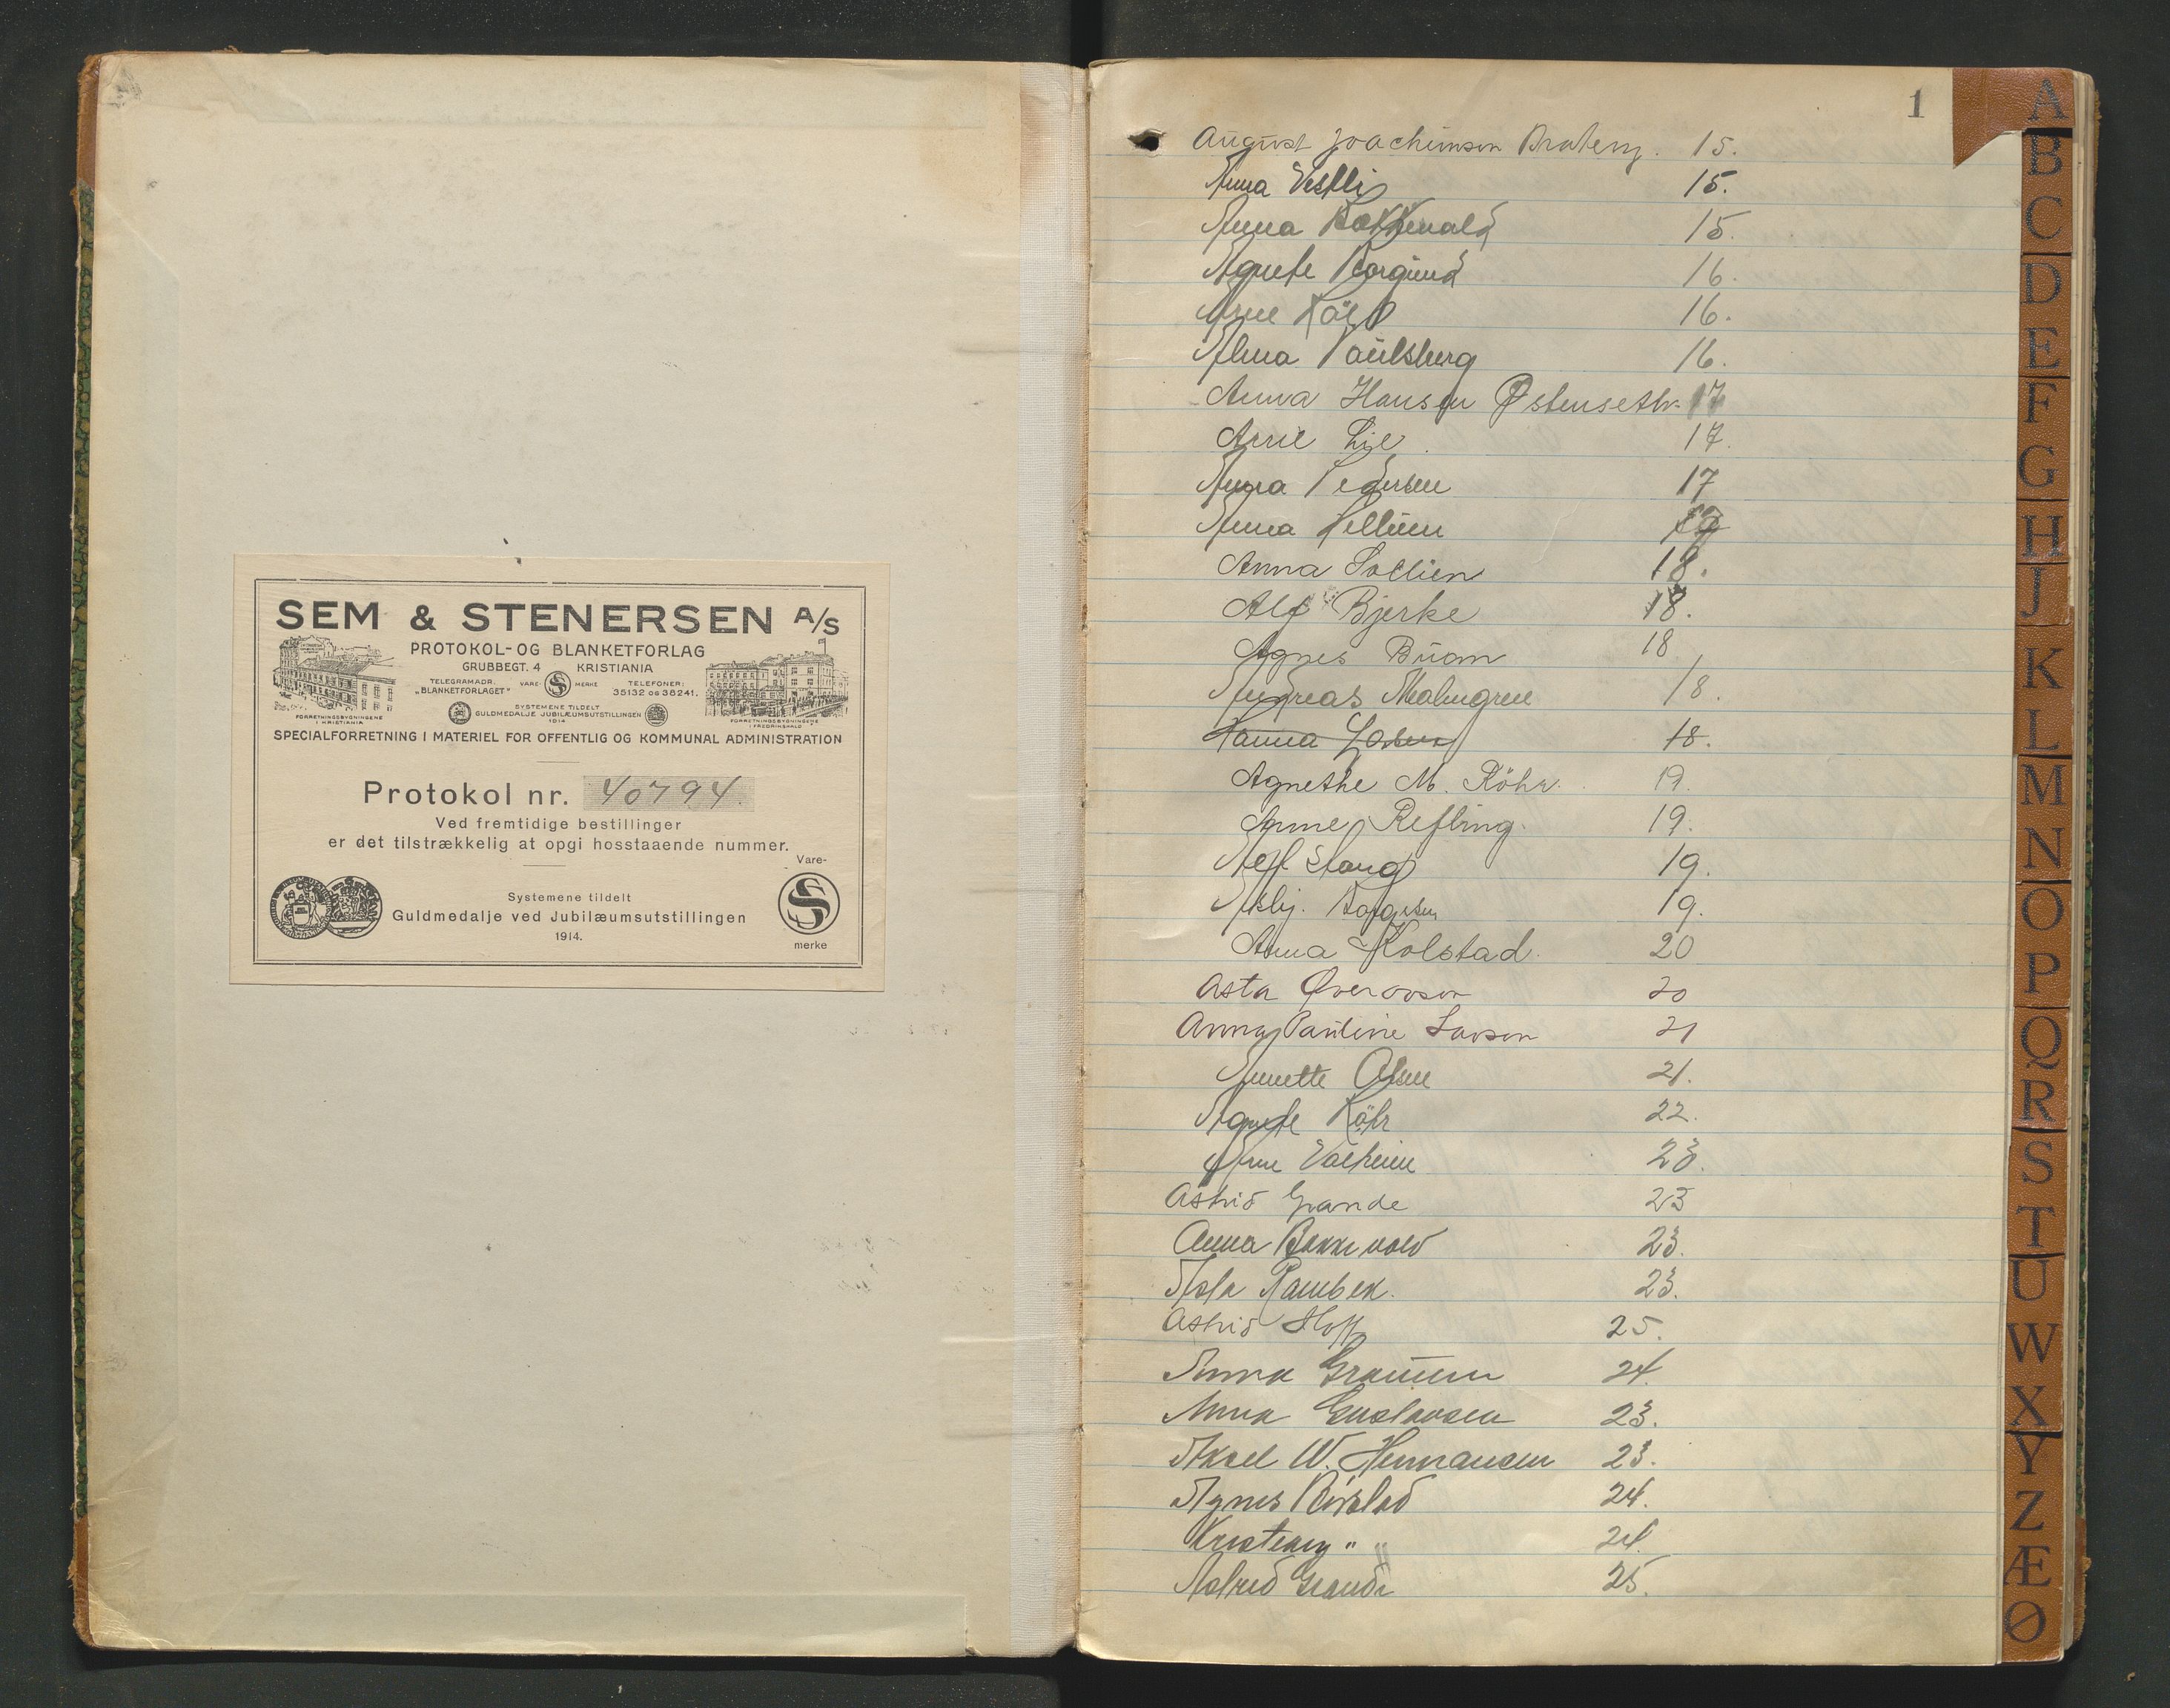 SEM & STENERSEN A/S
PROTOKOL- OG BLANKETFORLAG
GRUBBEGT. 4 KRISTIANIA
TELEGRAMADR. „BLANKETFORLAGET" VARE- S MERKE TELEFONER: 35132 OG 38241.
SYSTEMENE TILDELT
GULDMEDALJE JUBILÆUMSUTSTILLINGEN
1914
FORRETNINGSBYGNINGENE I KRISTIANIA
FORRETNINGSBYGNINGENE I FREDRIKSHALD
SPECIALFORRETNING I MATERIEL FOR OFFENTLIG OG KOMMUNAL ADMINISTRATION
Protokol nr. 40794.
Ved fremtidige bestillinger
er det tilstrækkelig at opgi hosstaaende nummer.
Systemene tildelt
Guldmedalje ved Jubilæumsutstillingen
1914.
Vare-
S
merke
1
August Joachimsen 15.
Anna Vestli 15.
Anna Bakkevald 15.
Agnete Borgund 16.
Arne 16.
Alma Paulsberg 16.
Anna Hansen Østenseth. 17
Arne Lie 17.
Anna Pedersen 17
Anna
Anna Sollien 18.
Alf Bjerke 18.
Agnes Buan 18
Andreas Malmgren 18.
Hanna 18.
Agnethe M. Röhr. 19.
Anne Refling. 19.
Alf Stang 19.
Asbj. 19.
Anna Kolstad. 20
Asta 20
Anna Pauline Larsen 21
Annette Olsen 21.
Agnete Röhr 22.
Arne 23.
Astrid Grande 23
Anna Bakkevold 23.
Asta Rambek. 23.
Astrid Hoff 25.
Anna 24.
Anna Gustavsen 23.
Aksel W. Hermansen 23.
Agnes 24.
" " 24.
Astrid Grande 25.
A
B
C
D
E
F
G
H
J
K
L
M
N
O
P
Q
R
S
T
U
W
X
Y
Z
Æ
Ø